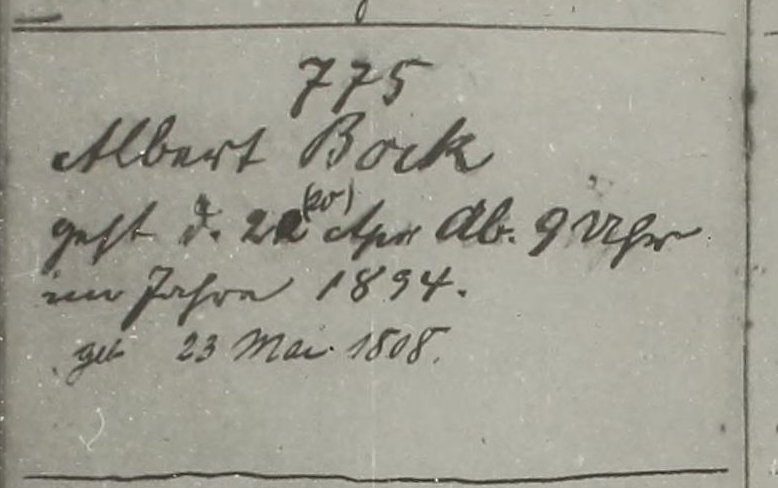 775
Albert Bock
gest d. 22 (20) Apr Ab. 9 Uhr
im Jahre 1894.
geb 23 Mai 1808.